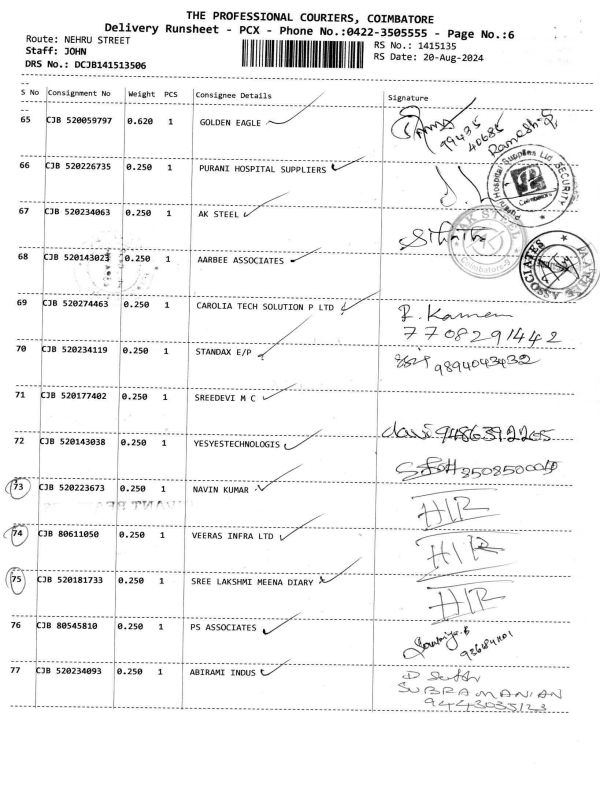 THE PROFESSIONAL COURIERS, COIMBATORE
Delivery Runsheet - PCX - Phone No.:0422-3505555 - Page No.:6
Route: NEHRU STREET
Staff: JOHN
DRS No.: DCJB141513506
RS No.: 1415135
RS Date: 20-Aug-2024
S No Consignment No Weight PCS Consignee Details Signature
65 CJB 520059797 0.620 1 GOLDEN EAGLE
99435
40685
Ramesh.S.
66 CJB 520226735 0.250 1 PURANI HOSPITAL SUPPLIERS
Purani Hospital Supplies Ltd SECURITY
Coimbatore
67 CJB 520234063 0.250 1 AK STEEL
AK STEEL
Coimbatore
68 CJB 520143023 0.250 1 AARBEE ASSOCIATES
ASSOCIATES
69 CJB 520274463 0.250 1 CAROLIA TECH SOLUTION P LTD
7708291442
70 CJB 520234119 0.250 1 STANDAX E/P
9894043432
71 CJB 520177402 0.250 1 SREEDEVI M C
9486392265
72 CJB 520143038 0.250 1 YESYESTECHNOLOGIS
73 CJB 520223673 0.250 1 NAVIN KUMAR
H/R
74 CJB 80611050 0.250 1 VEERAS INFRA LTD
H/R
75 CJB 520181733 0.250 1 SREE LAKSHMI MEENA DIARY
H/R
76 CJB 80545810 0.250 1 PS ASSOCIATES
77 CJB 520234093 0.250 1 ABIRAMI INDUS
SUBRAMANIAN
9443035123